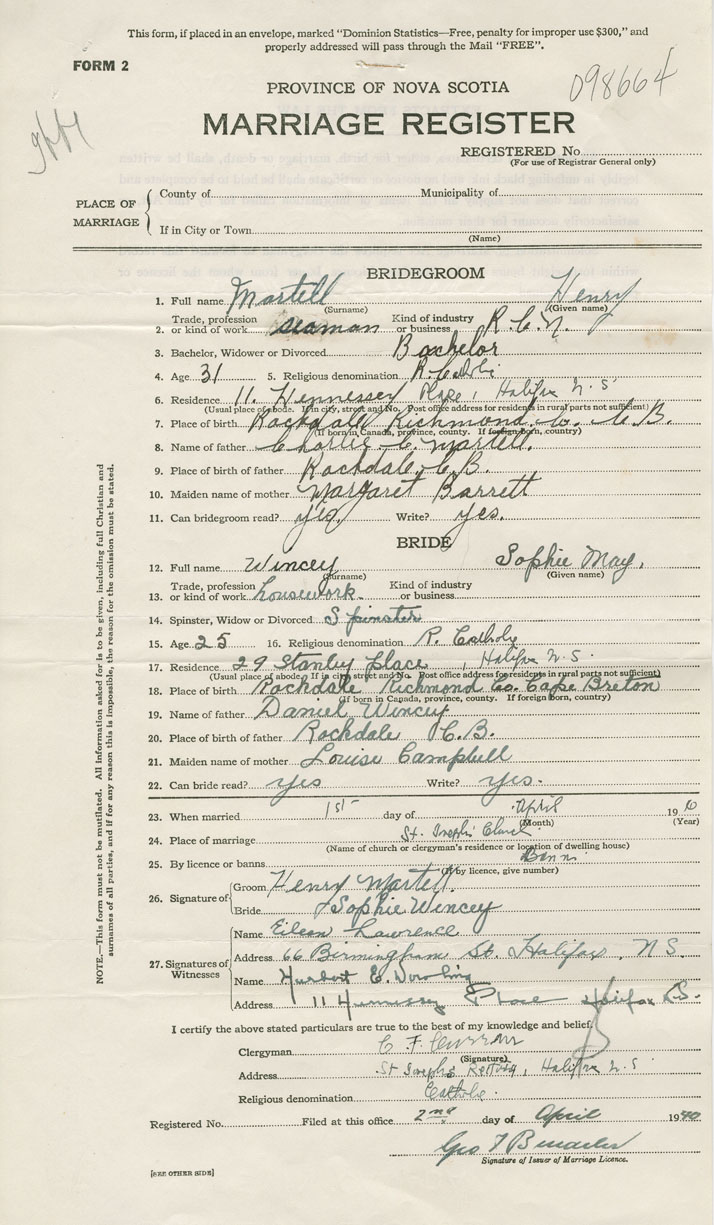 This form, if placed in an envelope, marked "Dominion Statistics—Free, penalty for improper use $300," and
properly addressed will pass through the Mail "FREE".
FORM 2
PROVINCE OF NOVA SCOTIA
098664
MARRIAGE REGISTER
REGISTERED No.
(For use of Registrar General only)
PLACE OF MARRIAGE
County of Municipality of
If in City or Town
(Name)
BRIDEGROOM
1. Full name Martell Henry
(Surname) (Given name)
Trade, profession Kind of industry
2. or kind of work seaman or business R.C.N.
3. Bachelor, Widower or Divorced Bachelor
4. Age 31 5. Religious denomination R. Catholic
6. Residence 11. Hennessey Place, Halifax N.S
(Usual place of abode. If in city, street and No. Post office address for residents in rural parts not sufficient)
7. Place of birth Rockdale Richmond Co. C.B.
(If born in Canada, province, county. If foreign born, country)
8. Name of father Charlie C. Martell.
9. Place of birth of father Rockdale C.B.
10. Maiden name of mother Margaret Barrett
11. Can bridegroom read? yes. Write? yes.
BRIDE
12. Full name Wincey Sophie May,
(Surname) (Given name)
Trade, profession Kind of industry
13. or kind of work housework. or business
14. Spinster, Widow or Divorced Spinster
15. Age 25 16. Religious denomination R. Catholic
17. Residence 29 Stanley Place, Halifax N.S.
(Usual place of abode. If in city street and No. Post office address for residents in rural parts not sufficient)
18. Place of birth Rockdale Richmond Co. Cape Breton
(If born in Canada, province, county. If foreign born, country)
19. Name of father Daniel Wincey
20. Place of birth of father Rockdale C.B.
21. Maiden name of mother Louise Campbell
22. Can bride read? yes Write? yes.
23. When married 1st day of April 19
(Month) (Year)
24. Place of marriage St. Joseph's Church
(Name of church or clergyman's residence or location of dwelling house)
25. By licence or banns Banns
(If by licence, give number)
26. Signature of
Groom Henry Martell.
Bride Sophie Wincey
27. Signatures of Witnesses
Name Eileen Lawrence
Address 66 Birmingham St. Halifax, N.S.
Name Hurbert E. Dowling
Address 11 Hennessey Place Halifax N.S.
I certify the above stated particulars are true to the best of my knowledge and belief.
Clergyman C. F. Curran
(Signature)
Address St Joseph's Rectory, Halifax N.S
Religious denomination Catholic.
Registered No. Filed at this office 2nd day of April 1940
Geo
Signature of Issuer of Marriage Licence.
[SEE OTHER SIDE]
NOTE.—This form must not be mutilated. All information asked for is to be given, including full Christian and
surnames of all parties, and if for any reason this is impossible, the reason for the omission must be stated.